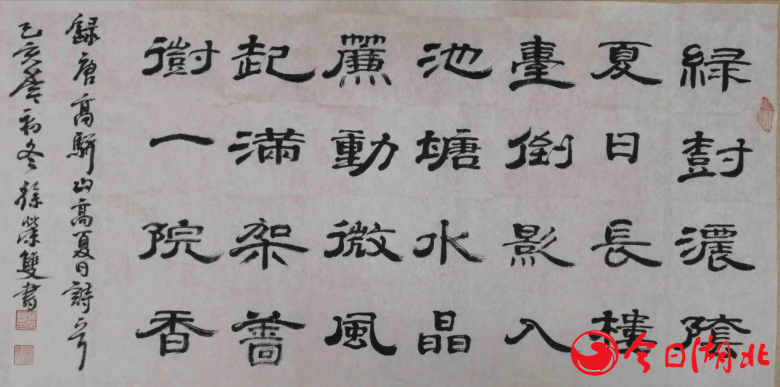 緑尌濃陰
夏日長樓
臺倒影入
池塘水晶
簾動微風
起滿架薔
樹一院香
録唐高駢山高夏日詩
己亥年初冬徐榮雙書
今日湖北